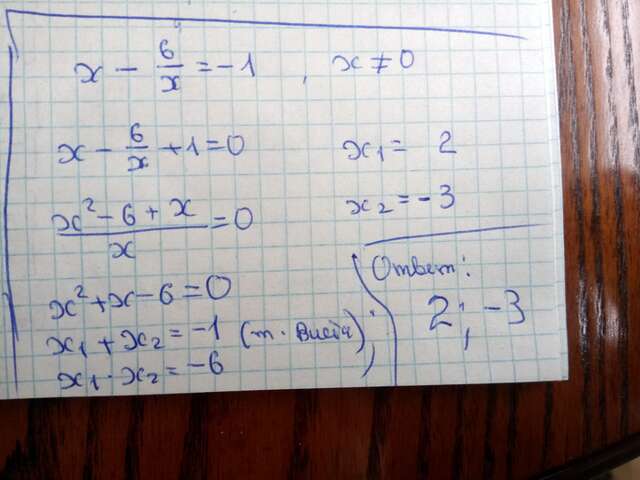 x - 6/x = -1, x ≠ 0
x - 6/x + 1 = 0
(x² - 6 + x)/x = 0
x² + x - 6 = 0
x₁ + x₂ = -1 (т. Виета)
x₁ · x₂ = -6
x₁ = 2
x₂ = -3
Ответ:
2; -3